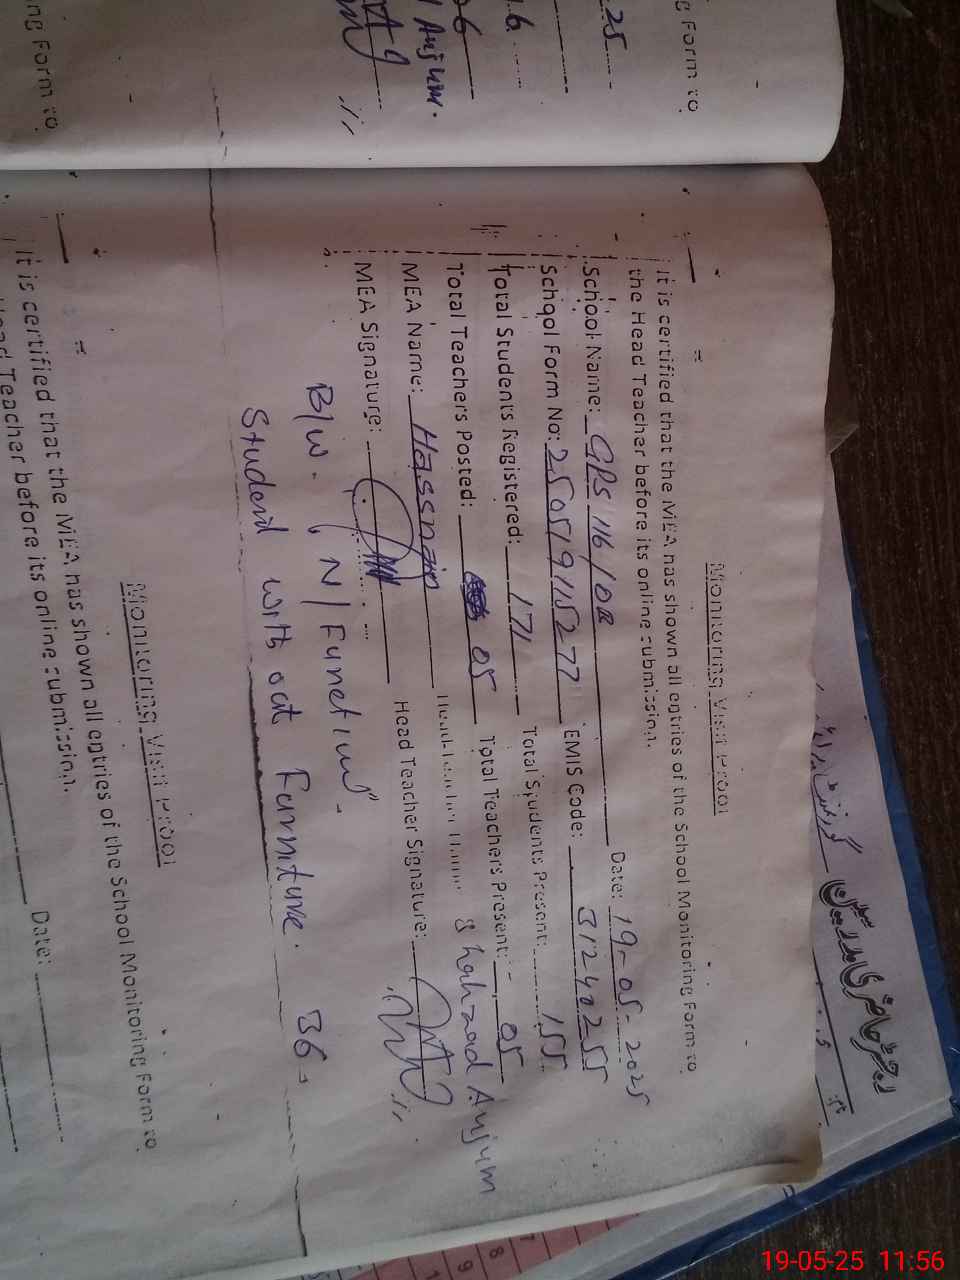 Monitoring Visit Proof
It is certified that the MEA has shown all entries of the School Monitoring Form to
the Head Teacher before its online submission.
School Name: GPS 116/10R Date: 19-05-2025
School Form No: 250519115277 EMIS Code: 31240255
Total Students Registered: 171 Total Students Present: 155
Total Teachers Posted: 05 Total Teachers Present: 05
MEA Name: Hassnain Head Teacher Name: Shahzad Anjum
MEA Signature: Head Teacher Signature:
B/w. N/Function.
Student with out Furniture. 36
Monitoring Visit Proof
It is certified that the MEA has shown all entries of the School Monitoring Form to
Head Teacher before its online submission.
Date:
g Form to
25
.6
06
Anjum.
ng Form to
رجسٹر حاضری مدرسین
گورنمنٹ
7
8
9
19-05-25 11:56